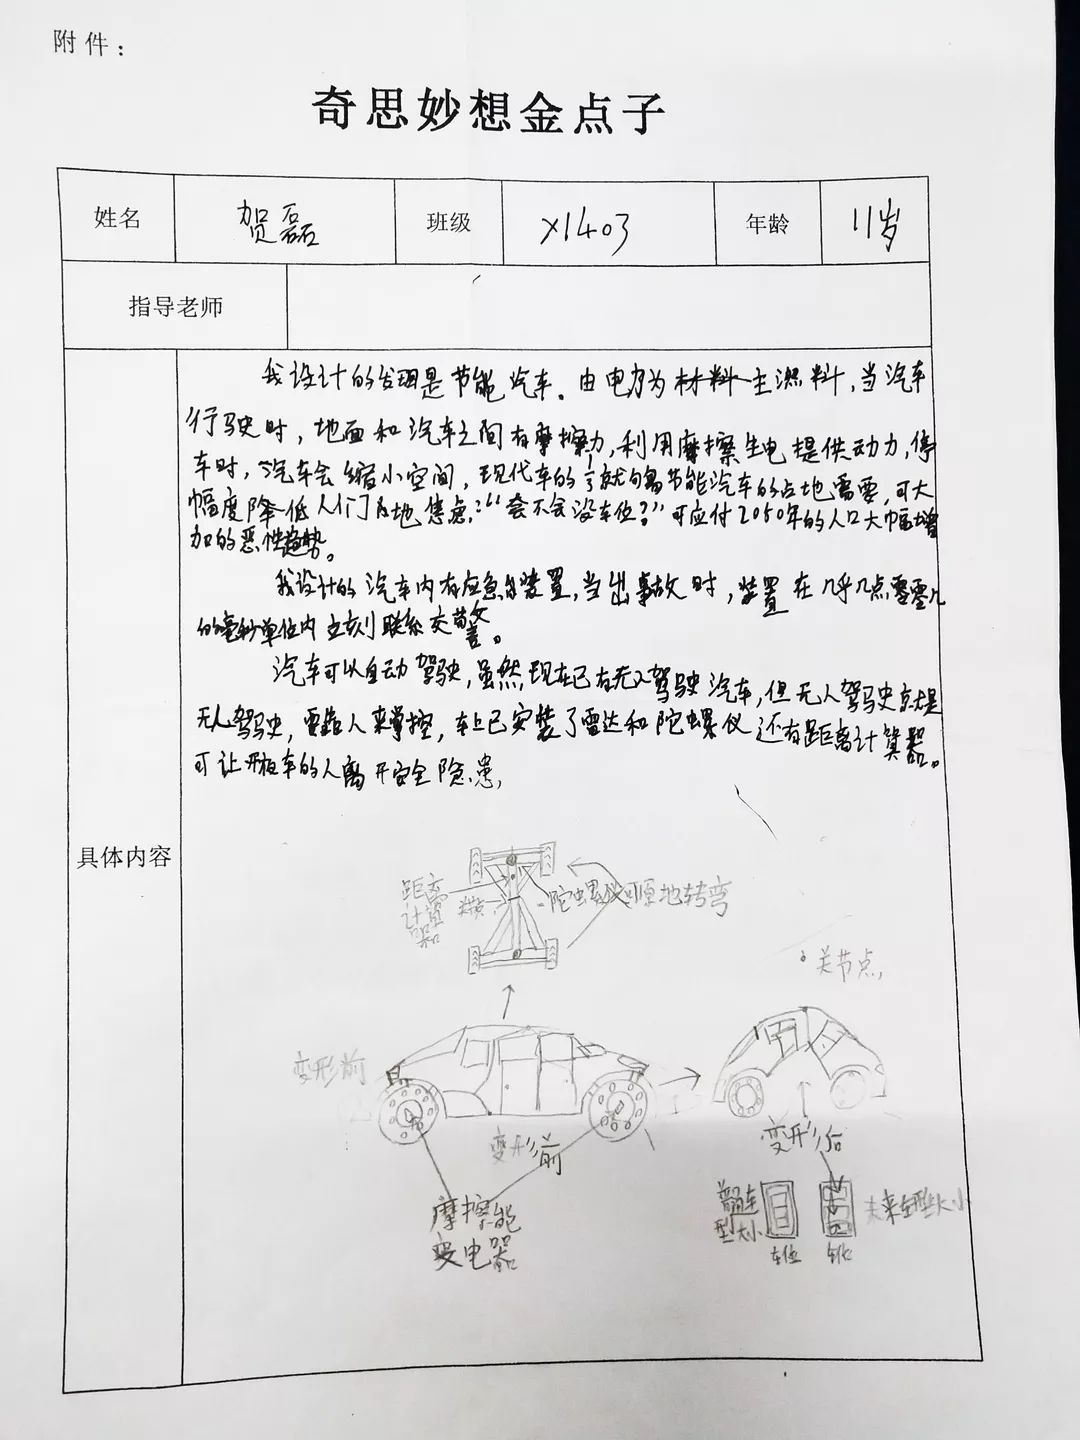 附件：
奇思妙想金点子
姓名 贺磊 班级 X1403 年龄 11岁
指导老师
具体内容
我设计的发明是节能汽车。由电力为材料主燃料，当汽车
行驶时，地面和汽车之间有摩擦力，利用摩擦生电提供动力，停
车时，汽车会缩小空间，现代车的⅓就够节能汽车的占地需要，可大
幅度降低人们的焦虑："会不会没车位？"可应付2050年的人口大幅增
加的恶性趋势。
我设计的汽车内有应急装置，当出事故时，装置在几乎几点零零几
的毫秒单位内立刻联系交警。
汽车可以自动驾驶，虽然现在已有无人驾驶汽车，但无人驾驶就是
无人驾驶，需靠人来掌控，车上已安装了雷达和陀螺仪还有距离计算器。
可让开车的人离开安全隐患，
距离
计算
器
陀螺仪可原地转弯
关节点，
变形前
变形前
变形后
摩擦能
变电器
普通车
型大小
车位
未来车型大小
车位